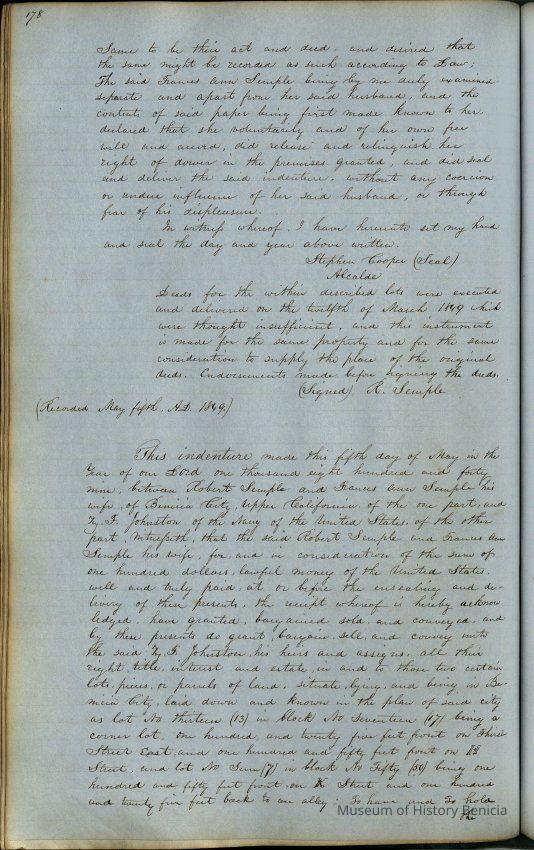 178
Same to be their act and deed, and desired that
the same might be recorded as such according to Law;
The said Frances Ann Semple being by me duly examined
separate and apart from her said husband, and the
contents of said paper being first made known to her
declared that she voluntarily and of her own free
will and accord, did release and relinquish her
right of dower in the premises granted, and did seal
and deliver the said indenture, without any coercion
or undue influence of her said husband, or through
fear of his displeasure.
In witness whereof, I have hereunto set my hand
and seal the day and year above written.
Stephen Cooper (Seal)
Alcalde
Deeds for the within described lots were executed
and delivered on the twelfth of March, 1849 which
were thought insufficient, and this instrument
is made for the same property and for the same
consideration to supply the place of the original
deeds. Endorsements made before signing the deeds.
(Signed) R. Semple
(Recorded May fifth, A.D. 1849)
This indenture made this fifth day of May in the
Year of our Lord one thousand eight hundred and forty
nine, between Robert Semple and Frances Ann Semple his
wife, of Benicia City, Upper California, of the one part, and
Z. F. Johnston of the Navy of the United States, of the other
part, Witnesseth, that the said Robert Semple and Frances Ann
Semple his wife, for, and in consideration of the sum of
one hundred dollars, lawful money of the United States,
well and truly paid, at or before the ensealing and de-
livery of these presents, the receipt whereof is hereby acknow
ledged, have granted, bargained sold, and conveyed, and
by these presents do grant, bargain, sell, and convey unto
the said Z. F. Johnston, his heirs and assigns, all their
right, title, interest and estate, in and to those two certain
lots, pieces, or parcels of land, situate, lying, and being in Be-
nicia City, laid down and known in the plan of said city
as lot No thirteen (13) in block No Seventeen (17) being a
corner lot, one hundred, and twenty five feet front on Third
Street East, and one hundred and fifty feet front on
Street, and lot No Seven (7) in block No Fifty (50) being one
hundred and fifty feet front on K Street and one hundred
and twenty five feet back to an alley. To have and To hold
the
Museum of History Benicia